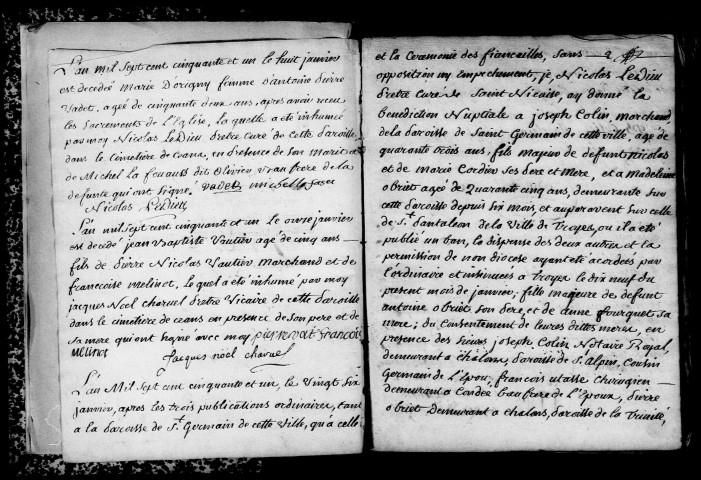 L'an mil Sept cent cinquante et un le huit janvier
est decedée Marie D'origny femme d'antoine Pierre
Vadet, agée de cinquante deux ans, apres avoir recu
les Sacrements de L'Eglise, la quelle a été inhumée
par moy Nicolas LeDieu Pretre Curé de cette Paroisse
dans le Cimetiere de ceans, en presence de Son Marit et
de Michel la
defunte qui ont Signé. vadet
Nicolas LeDieu
L'an mil Sept cent cinquante et un le onze janvier
est decedé jean Baptiste Vautier agé de cinq ans
fils de Pierre Nicolas Vautier Marchand et de
francoise melinet, le quel a été inhumé par moy
jacques Noel charuel Pretre Vicaire de cette Paroisse
dans le cimetiere de ceans en presence de Son pere et de
Sa mere qui ont signé avec moy francois
melinet
Jacques noël charuel
L'an Mil Sept cent cinquante et un, le Vingt Six
janvier, apres les trois publications ordinaires, tant
a la Paroisse de St. Germain de cette Ville, qu'a celle
et la Ceremonie des fiançailles, Sans 2
opposition ny Empechement, je, Nicolas LeDieu
Pretre Curé de Saint Nicaise, ay donné la
benediction Nuptiale a joseph Colin, marchand
de la Paroisse de Saint Germain de cette ville, agé de
quarante trois ans, fils majeur de defunt nicolas
et de Marie Cordier Ses Pere et Mere, et a madelaine
obriet agée de Quarante cinq ans, demeurante sur
cette Paroisse depuis Six mois, et auparavent sur celle
de St. Pantaleon de la Ville de Troyes, ou il a été
publié un ban, la dispense des deux autres et la
permission de mon diocese ayant été accordés par
l'ordinaire et insinuées a Troyes le dix neuf du
present mois de janvier; fille majeure de defunt
antoine obriet Son Pere, et de anne fourquet Sa
mere; du Consentement de leures dittes meres, en
presence des Sieurs joseph Colin Notaire Royal,
demeurant a châlons, Paroisse de S. Alpin, Cousin
Germain de L'Epoux, francois utasse chirugien
demeurant a Condée beaufrere de L'Epoux, Pierre
obriet Demeurant a chalons, Paroisse de la Trinité,